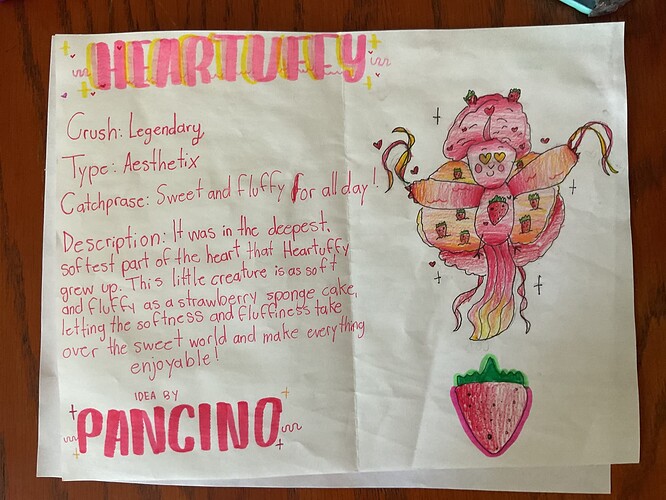 HEARTUFFY
Crush: Legendary
Type: Aesthetix
Catchprase: Sweet and fluffy for all day!
Description: It was in the deepest,
softest part of the heart that Heartuffy
grew up. This little creature is as soft
and fluffy as a strawberry sponge cake,
letting the softness and fluffiness take
over the sweet world and make everything
enjoyable!
IDEA BY
PANCINO